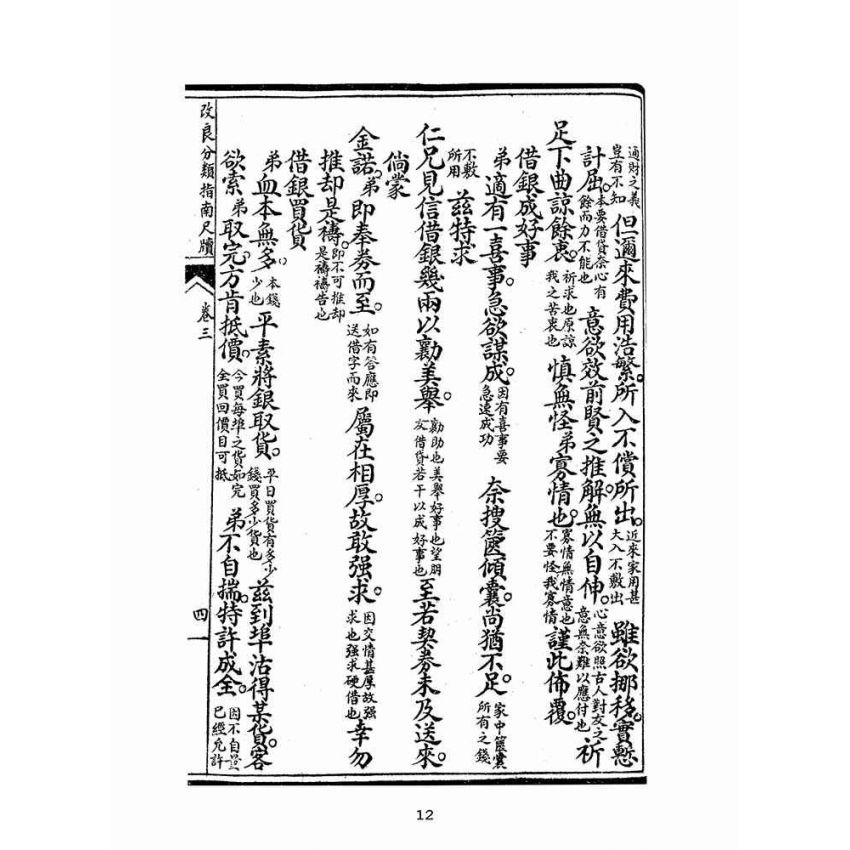 通財之義豈有不知但邇來費用浩繁。所入不償所出。近來家用甚大入不敷出雖欲挪移。實慙
計屈。本要借貸奈心有餘而力不能也意欲效前賢之推解。無以自伸。心意欲照古人對友之意無奈難以應付也祈
足下曲諒餘衷。祈求也原諒我之苦衷也慎無怪弟寡情也。寡情無情意也不要怪我寡情謹此佈覆。
借銀成好事
弟適有一喜事。急欲謀成。因有喜事要急速成功奈搜篋傾囊。尚猶不足。家中篋囊所有之錢
不敷所用茲特求
仁兄見信借銀幾兩以勷美舉。勷助也美舉好事也望朋友借貸若干以成好事也至若契券未及送來。
倘蒙
金諾。弟即奉券而至。如有答應即送借字而來屬在相厚。故敢强求。因交情甚厚故强求也强求硬借也幸勿
推却是禱。即不可推却是禱禱告也
借銀買貨
弟血本無多。本錢少也平素將銀取貨。平日買貨有多少錢買多少貨也茲到埠沽得某貨。客
欲索弟取完。方肯抵價。今買每埠之貨如完全買回價目可抵弟不自揣。特許成全。因不自量已經允許
改良分類指南尺牘 卷三 四一
12